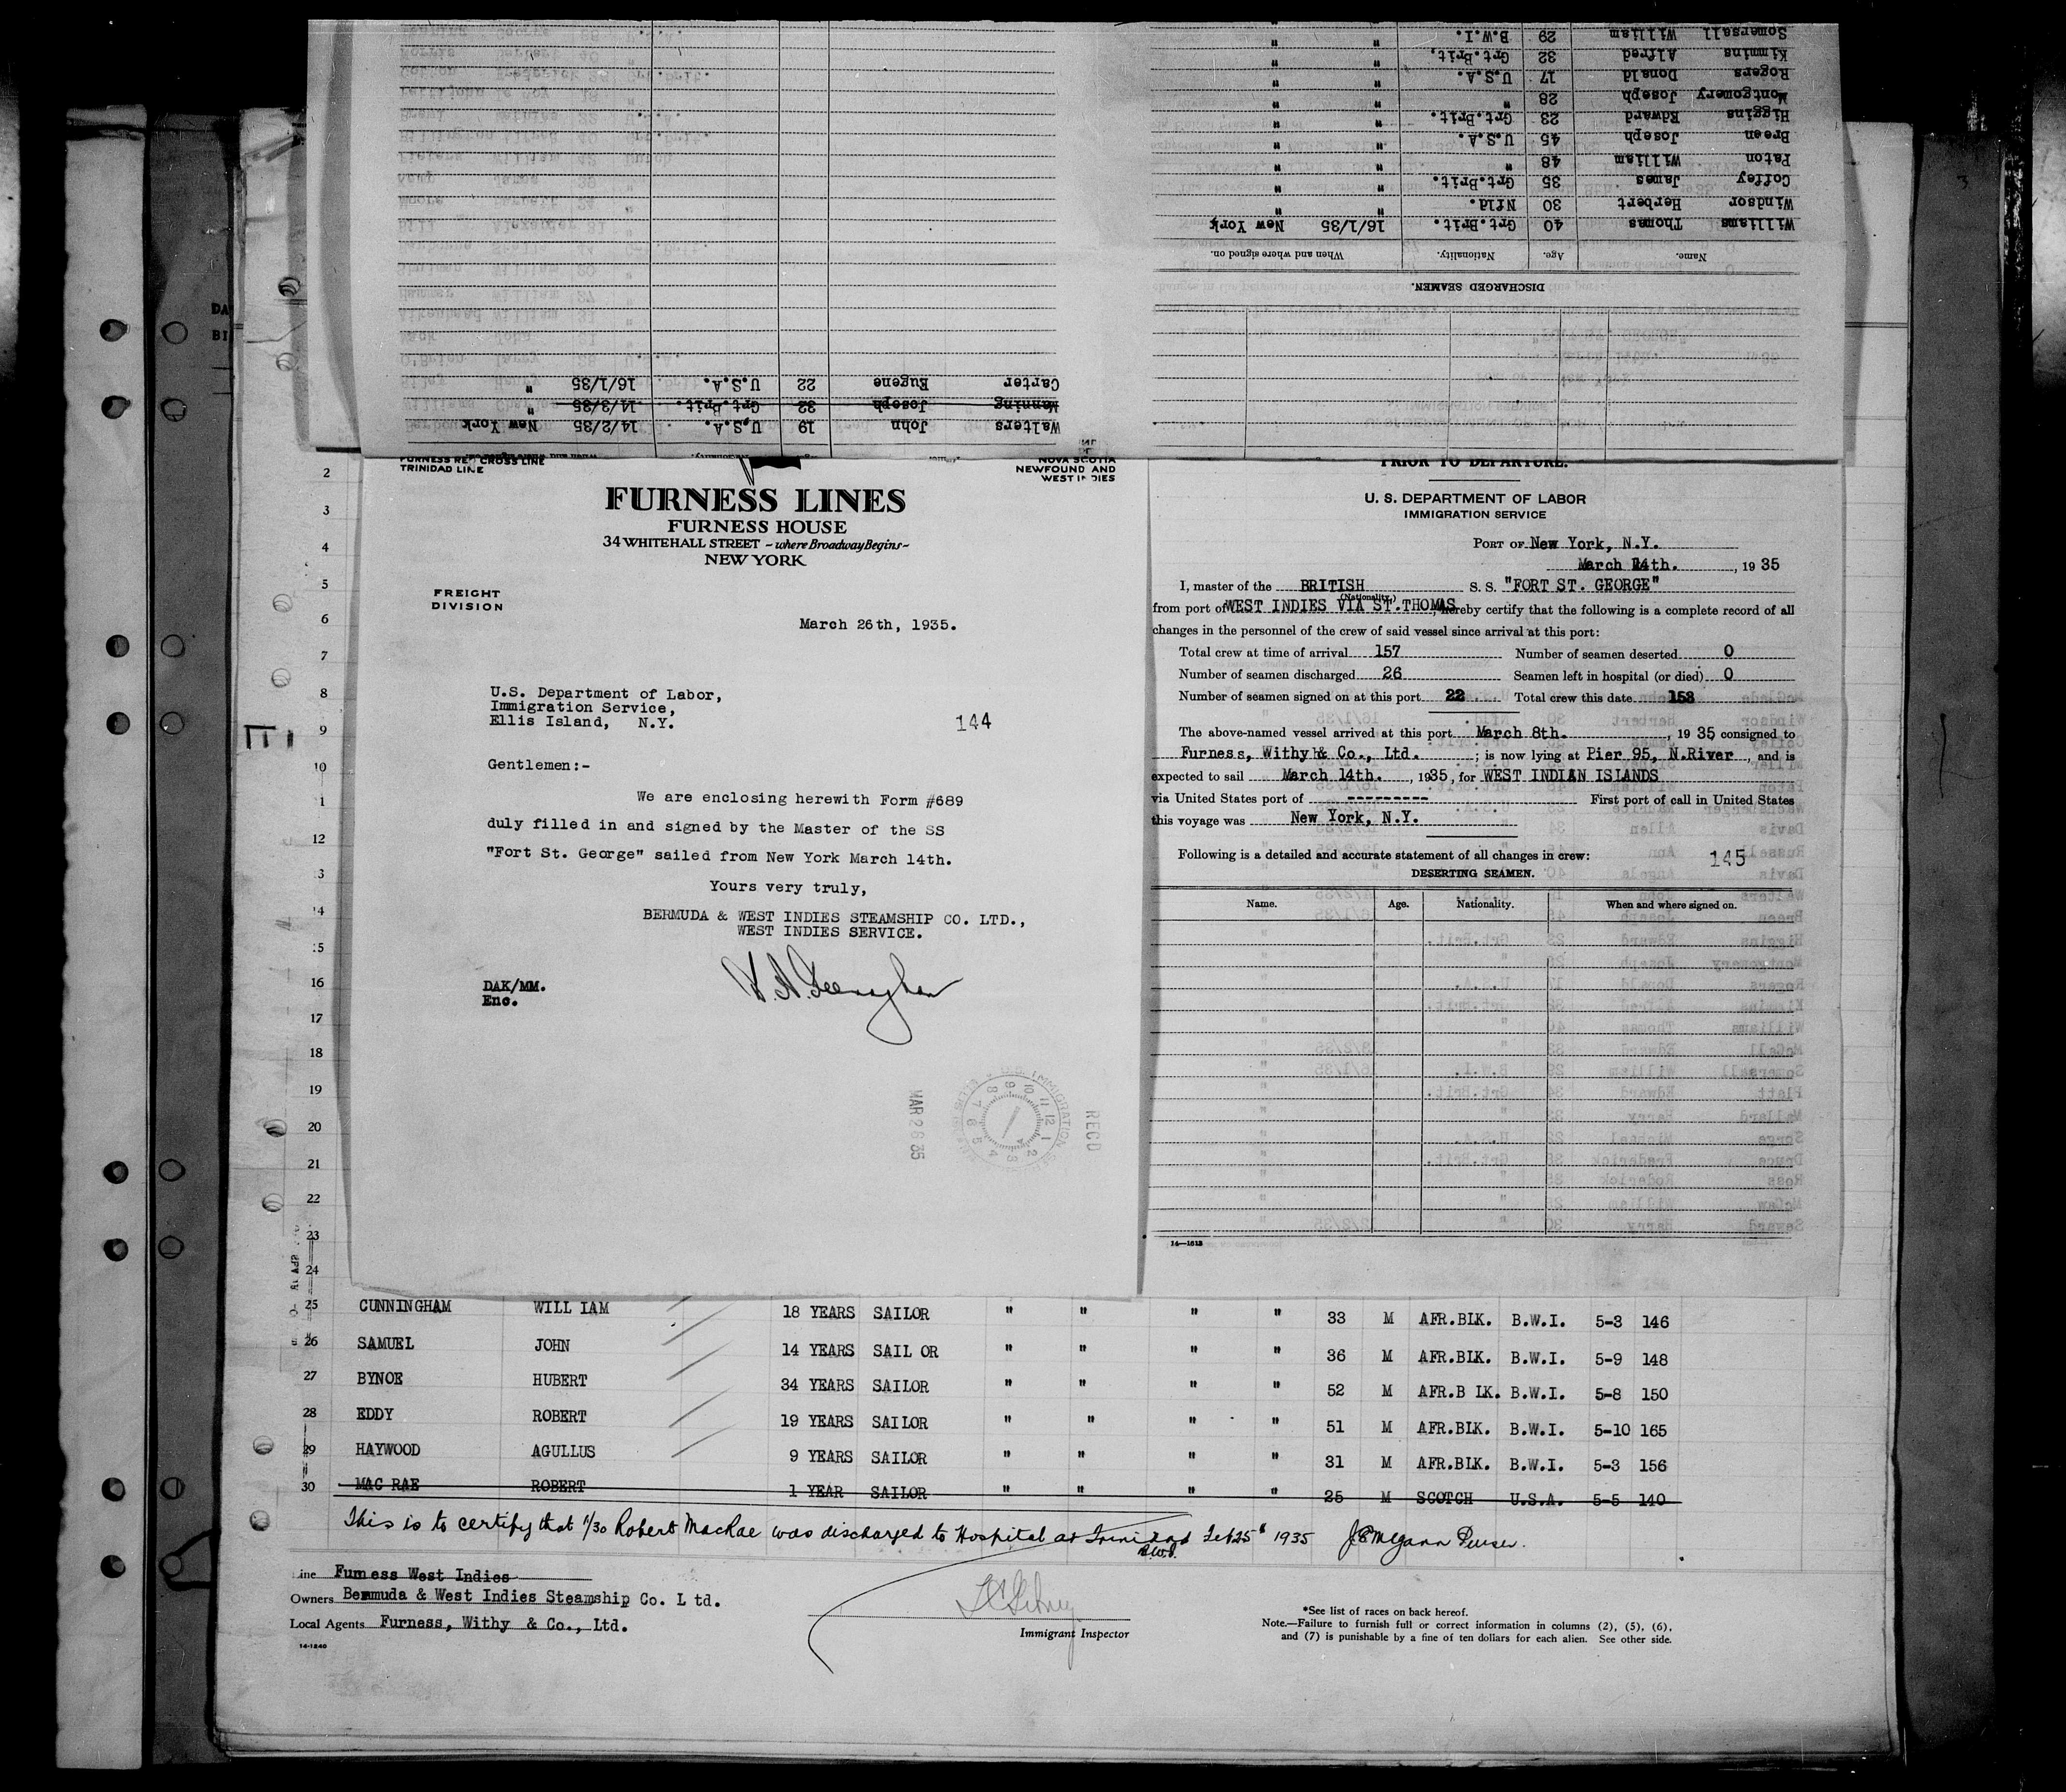 Somersall William 29 B.W.I. " "
Kimmins Alfred 32 Grt.Brit. " "
Rogers Donald 17 U.S.A. " "
Montgomery Joseph 28 " " "
Higgins Edward 23 Grt.Brit. " "
Breen Joseph 45 U.S.A. " "
Paton William 48 " " "
Coffey James 35 Grt.Brit. " "
Windsor Herbert 30 Nfld. " "
Williams Thomas 40 Grt.Brit. 16/1/35 New York
Name. Age. Nationality. When and where signed on.
DISCHARGED SEAMEN.
Carter Eugene 22 U.S.A. 16/1/35 "
Manning Joseph 32 Grt.Brit. 14/3/35 "
Walters John 19 U.S.A. 14/2/35 New York
FURNESS RED CROSS LINE
TRINIDAD LINE
NOVA SCOTIA
NEWFOUNDLAND AND
WEST INDIES
FURNESS LINES
FURNESS HOUSE
34 WHITEHALL STREET - where Broadway Begins -
NEW YORK
FREIGHT
DIVISION
March 26th, 1935.
U.S. Department of Labor,
Immigration Service,
Ellis Island, N.Y.
144
Gentlemen:-
We are enclosing herewith Form #689
duly filled in and signed by the Master of the SS
"Fort St. George" sailed from New York March 14th.
Yours very truly,
BERMUDA & WEST INDIES STEAMSHIP CO. LTD.,
WEST INDIES SERVICE.
DAK/MM.
Enc.
MAR 26 35
RECD
PRIOR TO DEPARTURE.
U. S. DEPARTMENT OF LABOR
IMMIGRATION SERVICE
PORT OF New York, N.Y.
March 14th. , 1935
I, master of the BRITISH S. S. "FORT ST. GEORGE"
(Nationality.)
from port of WEST INDIES VIA ST.THOMAS, hereby certify that the following is a complete record of all
changes in the personnel of the crew of said vessel since arrival at this port:
Total crew at time of arrival 157 Number of seamen deserted 0
Number of seamen discharged 26 Seamen left in hospital (or died) 0
Number of seamen signed on at this port 22 Total crew this date 153
The above-named vessel arrived at this port March 8th. , 1935 consigned to
Furness, Withy & Co., Ltd. ; is now lying at Pier 95, N.River , and is
expected to sail March 14th. , 1935, for WEST INDIAN ISLANDS
via United States port of --------- First port of call in United States
this voyage was New York, N.Y.
Following is a detailed and accurate statement of all changes in crew:
145
DESERTING SEAMEN.
Name. Age. Nationality. When and where signed on.
14-1613
2
3
4
5
6
7
8
9
10
1
12
3
14
15
16
17
18
19
20
21
22
23
24
25 CUNNINGHAM WILL IAM 18 YEARS SAILOR " " " " 33 M AFR.BLK. B.W.I. 5-3 146
26 SAMUEL JOHN 14 YEARS SAIL OR " " " " 36 M AFR.BLK. B.W.I. 5-9 148
27 BYNOE HUBERT 34 YEARS SAILOR " " " " 52 M AFR.B LK. B.W.I. 5-8 150
28 EDDY ROBERT 19 YEARS SAILOR " " " " 51 M AFR.BLK. B.W.I. 5-10 165
29 HAYWOOD AGULLUS 9 YEARS SAILOR " " " " 31 M AFR.BLK. B.W.I. 5-3 156
30 MAC RAE ROBERT 1 YEAR SAILOR " " " " 25 M SCOTCH U.S.A. 5-5 140
This is to certify that 1/30 Robert MacRae was discharged to Hospital at Trinidad Feb 25th 1935
B.W.I.
Line Furness West Indies
Owners Bermuda & West Indies Steamship Co. L td.
Local Agents Furness, Withy & Co., Ltd.
14-1240
Immigrant Inspector
*See list of races on back hereof.
Note.—Failure to furnish full or correct information in columns (2), (5), (6),
and (7) is punishable by a fine of ten dollars for each alien. See other side.